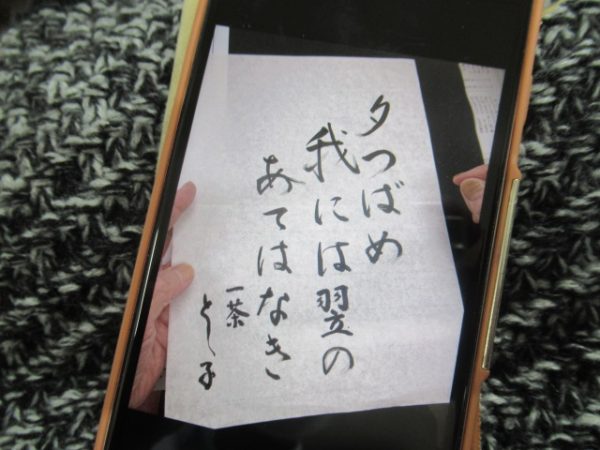 夕つばめ
我には翌の
あてはなき
一茶
とし子